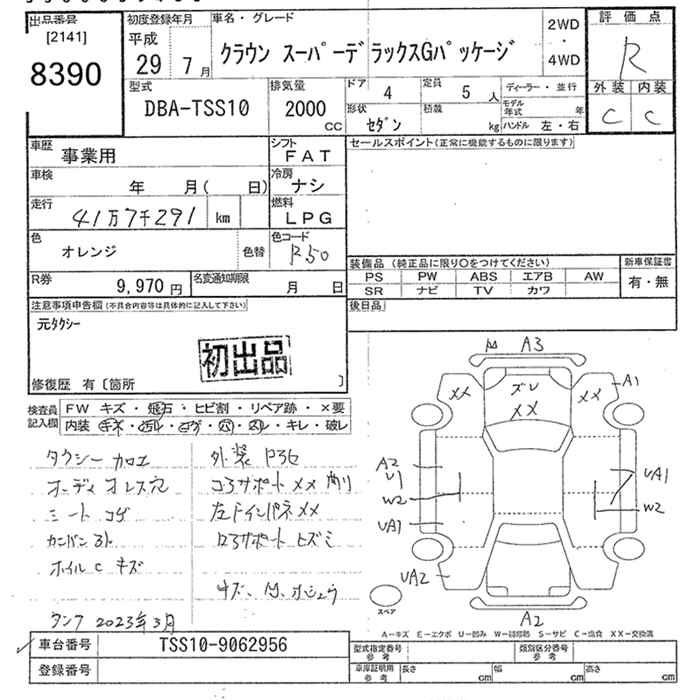 出品番号
[2141]
8390
初度登録年月
平成
29 7月
車名・グレード
クラウン スーパーデラックスGパッケージ
2WD
・
4WD
評価点
R
外装 内装
C C
型式
DBA-TSS10
排気量
2000
CC
ドア 4
定員 5 人
形状 セダン
積載 kg
ディーラー・並行
モデル年式 年
ハンドル 左・右
車歴 事業用
シフト FAT
車検 年 月( 日)
冷房 ナシ
走行 41万7千291 km
燃料 LPG
色 オレンジ 色替
色コード R50
R券 9,970円
名変通知期限 月 日
セールスポイント(正常に機能するものに限ります)
装備品 (純正品に限り○をつけてください)
PS PW ABS エアB AW
SR ナビ TV カワ
新車保証書
有・無
後日品
注意事項申告欄(不具合内容等は具体的に記入して下さい)
元タクシー
初出品
修復歴 有〔箇所 〕
検査員記入欄
FW キズ・飛石・ヒビ割・リペア跡・×要
内装・キズ・ヨゴレ・コゲ・穴・スレ・キレ・破レ
タクシー加工
オーディオレス穴
シートコゲ
ホイルc キズ
タンク 2023年3月
外装
コアサポート XX
左ドインパネ XX
A3
ズレ
XX
XX
XX
A1
A2
U1
W2
UA1
UA1
W2
UA2
A2
スペア
A-キズ E-エクボ U-凹み W-補修跡 S-サビ C-腐食 XX-交換済
車台番号 TSS10-9062956
登録番号
型式指定番号 参考
類別区分番号 参考
車庫証明用 参考
長さ cm
幅 cm
高さ cm